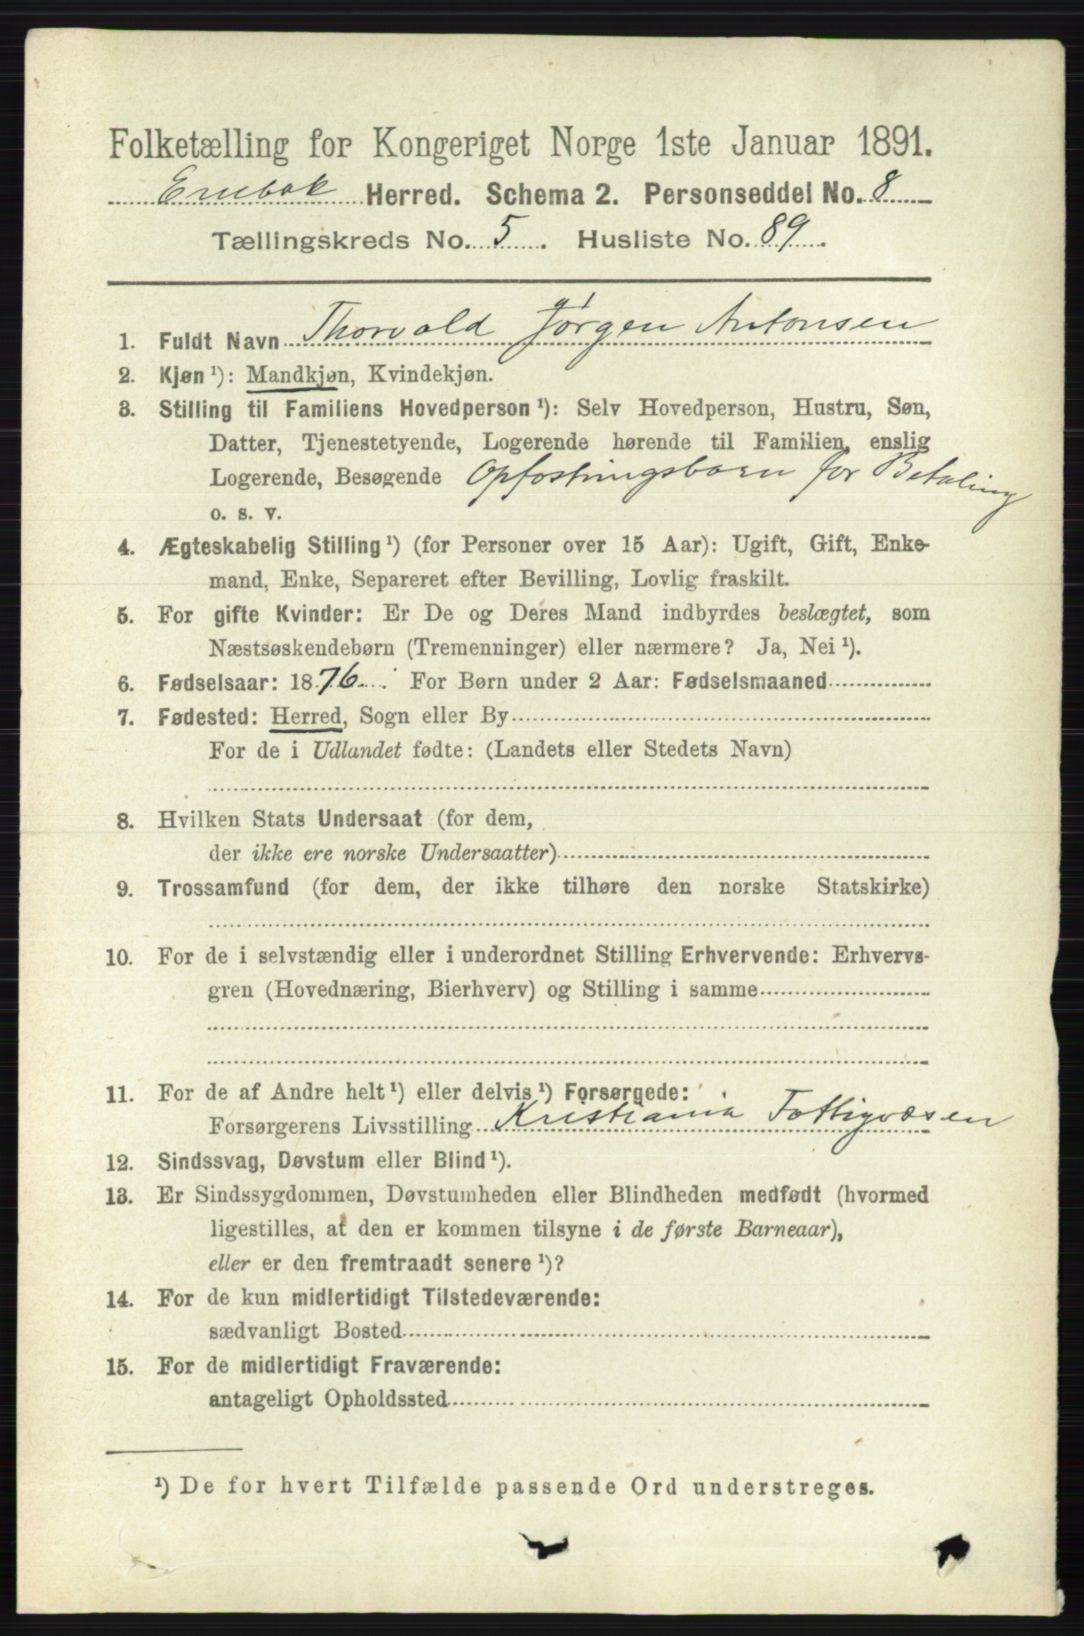 Folketælling for Kongeriget Norge 1ste Januar 1891.
Enebak Herred. Schema 2. Personseddel No. 8
Tællingskreds No. 5. Husliste No. 89.
1. Fuldt Navn Thorvald Jørgen Antonsen
2. Kjøn ¹): Mandkjøn, Kvindekjøn.
3. Stilling til Familiens Hovedperson ¹): Selv Hovedperson, Hustru, Søn,
Datter, Tjenestetyende, Logerende hørende til Familien, enslig
Logerende, Besøgende Opfostringsbarn for Betaling
o. s. v.
4. Ægteskabelig Stilling ¹) (for Personer over 15 Aar): Ugift, Gift, Enke-
mand, Enke, Separeret efter Bevilling, Lovlig fraskilt.
5. For gifte Kvinder: Er De og Deres Mand indbyrdes beslægtet, som
Næstsøskendebørn (Tremenninger) eller nærmere? Ja, Nei ¹).
6. Fødselsaar: 1876. For Børn under 2 Aar: Fødselsmaaned
7. Fødested: Herred, Sogn eller By
For de i Udlandet fødte: (Landets eller Stedets Navn)
8. Hvilken Stats Undersaat (for dem,
der ikke ere norske Undersaatter)
9. Trossamfund (for dem, der ikke tilhøre den norske Statskirke)
10. For de i selvstændig eller i underordnet Stilling Erhvervende: Erhvervs-
gren (Hovednæring, Bierhverv) og Stilling i samme
11. For de af Andre helt ¹) eller delvis ¹) Forsørgede:
Forsørgerens Livsstilling Kristiania Fattigvæsen
12. Sindssvag, Døvstum eller Blind ¹).
13. Er Sindssygdommen, Døvstumheden eller Blindheden medfødt (hvormed
ligestilles, at den er kommen tilsyne i de første Barneaar),
eller er den fremtraadt senere ¹)?
14. For de kun midlertidigt Tilstedeværende:
sædvanligt Bosted
15. For de midlertidigt Fraværende:
antageligt Opholdssted
¹) De for hvert Tilfælde passende Ord understreges.